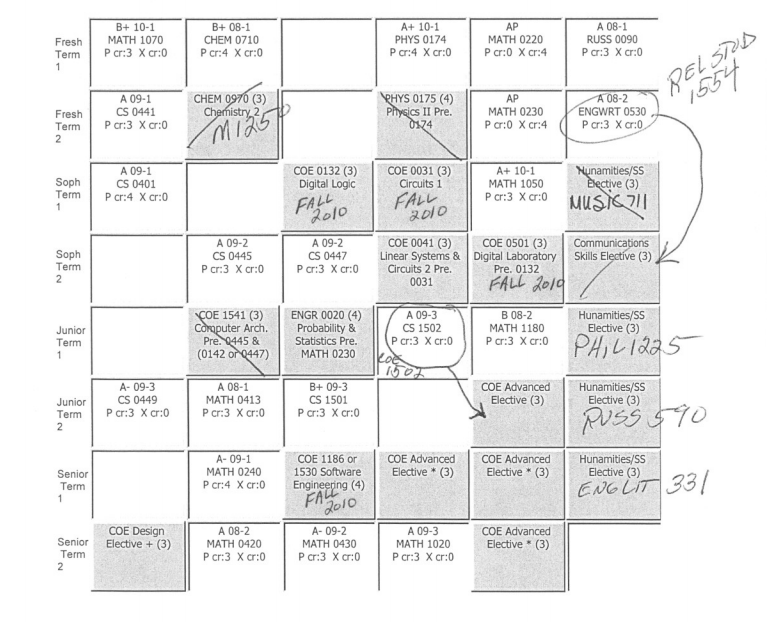 Fresh Term 1
B+ 10-1
MATH 1070
P cr:3 X cr:0
B+ 08-1
CHEM 0710
P cr:4 X cr:0
A+ 10-1
PHYS 0174
P cr:4 X cr:0
AP
MATH 0220
P cr:0 X cr:4
A 08-1
RUSS 0090
P cr:3 X cr:0
REL STUD
1554
Fresh Term 2
A 09-1
CS 0441
P cr:3 X cr:0
CHEM 0970 (3)
Chemistry 2
M1250
PHYS 0175 (4)
Physics II Pre.
0174
AP
MATH 0230
P cr:0 X cr:4
A 08-2
ENGWRT 0530
P cr:3 X cr:0
Soph Term 1
A 09-1
CS 0401
P cr:4 X cr:0
COE 0132 (3)
Digital Logic
FALL
2010
COE 0031 (3)
Circuits 1
FALL
2010
A+ 10-1
MATH 1050
P cr:3 X cr:0
Hunamities/SS
Elective (3)
MUSIC 711
Soph Term 2
A 09-2
CS 0445
P cr:3 X cr:0
A 09-2
CS 0447
P cr:3 X cr:0
COE 0041 (3)
Linear Systems &
Circuits 2 Pre.
0031
COE 0501 (3)
Digital Laboratory
Pre. 0132
FALL 2010
Communications
Skills Elective (3)
Junior Term 1
COE 1541 (3)
Computer Arch.
Pre. 0445 &
(0142 or 0447)
ENGR 0020 (4)
Probability &
Statistics Pre.
MATH 0230
A 09-3
CS 1502
P cr:3 X cr:0
COE
1502
B 08-2
MATH 1180
P cr:3 X cr:0
Hunamities/SS
Elective (3)
PHIL 1225
Junior Term 2
A- 09-3
CS 0449
P cr:3 X cr:0
A 08-1
MATH 0413
P cr:3 X cr:0
B+ 09-3
CS 1501
P cr:3 X cr:0
COE Advanced
Elective (3)
Hunamities/SS
Elective (3)
RUSS 590
Senior Term 1
A- 09-1
MATH 0240
P cr:4 X cr:0
COE 1186 or
1530 Software
Engineering (4)
FALL
2010
COE Advanced
Elective * (3)
COE Advanced
Elective * (3)
Hunamities/SS
Elective (3)
ENGLIT 331
Senior Term 2
COE Design
Elective + (3)
A 08-2
MATH 0420
P cr:3 X cr:0
A- 09-2
MATH 0430
P cr:3 X cr:0
A 09-3
MATH 1020
P cr:3 X cr:0
COE Advanced
Elective * (3)